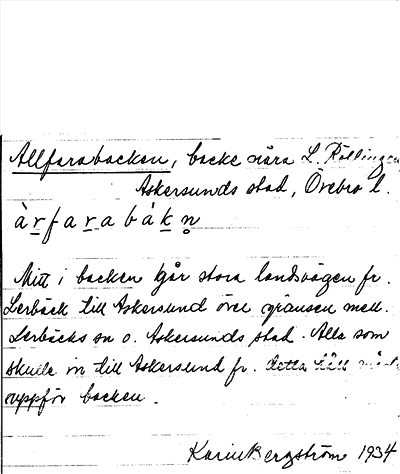 Allfarabacken, backe nära L. Röllingen
Askersunds stad, Örebro l.
àrfarabákn̥
Mitt i backen går stora landsvägen fr.
Lerbäck till Askersund över gränsen mell.
Lerbäcks sn o. Askersunds stad. Alla som
skulle in till Askersund fr. detta håll
uppför backen.
Karin Bergström 1934